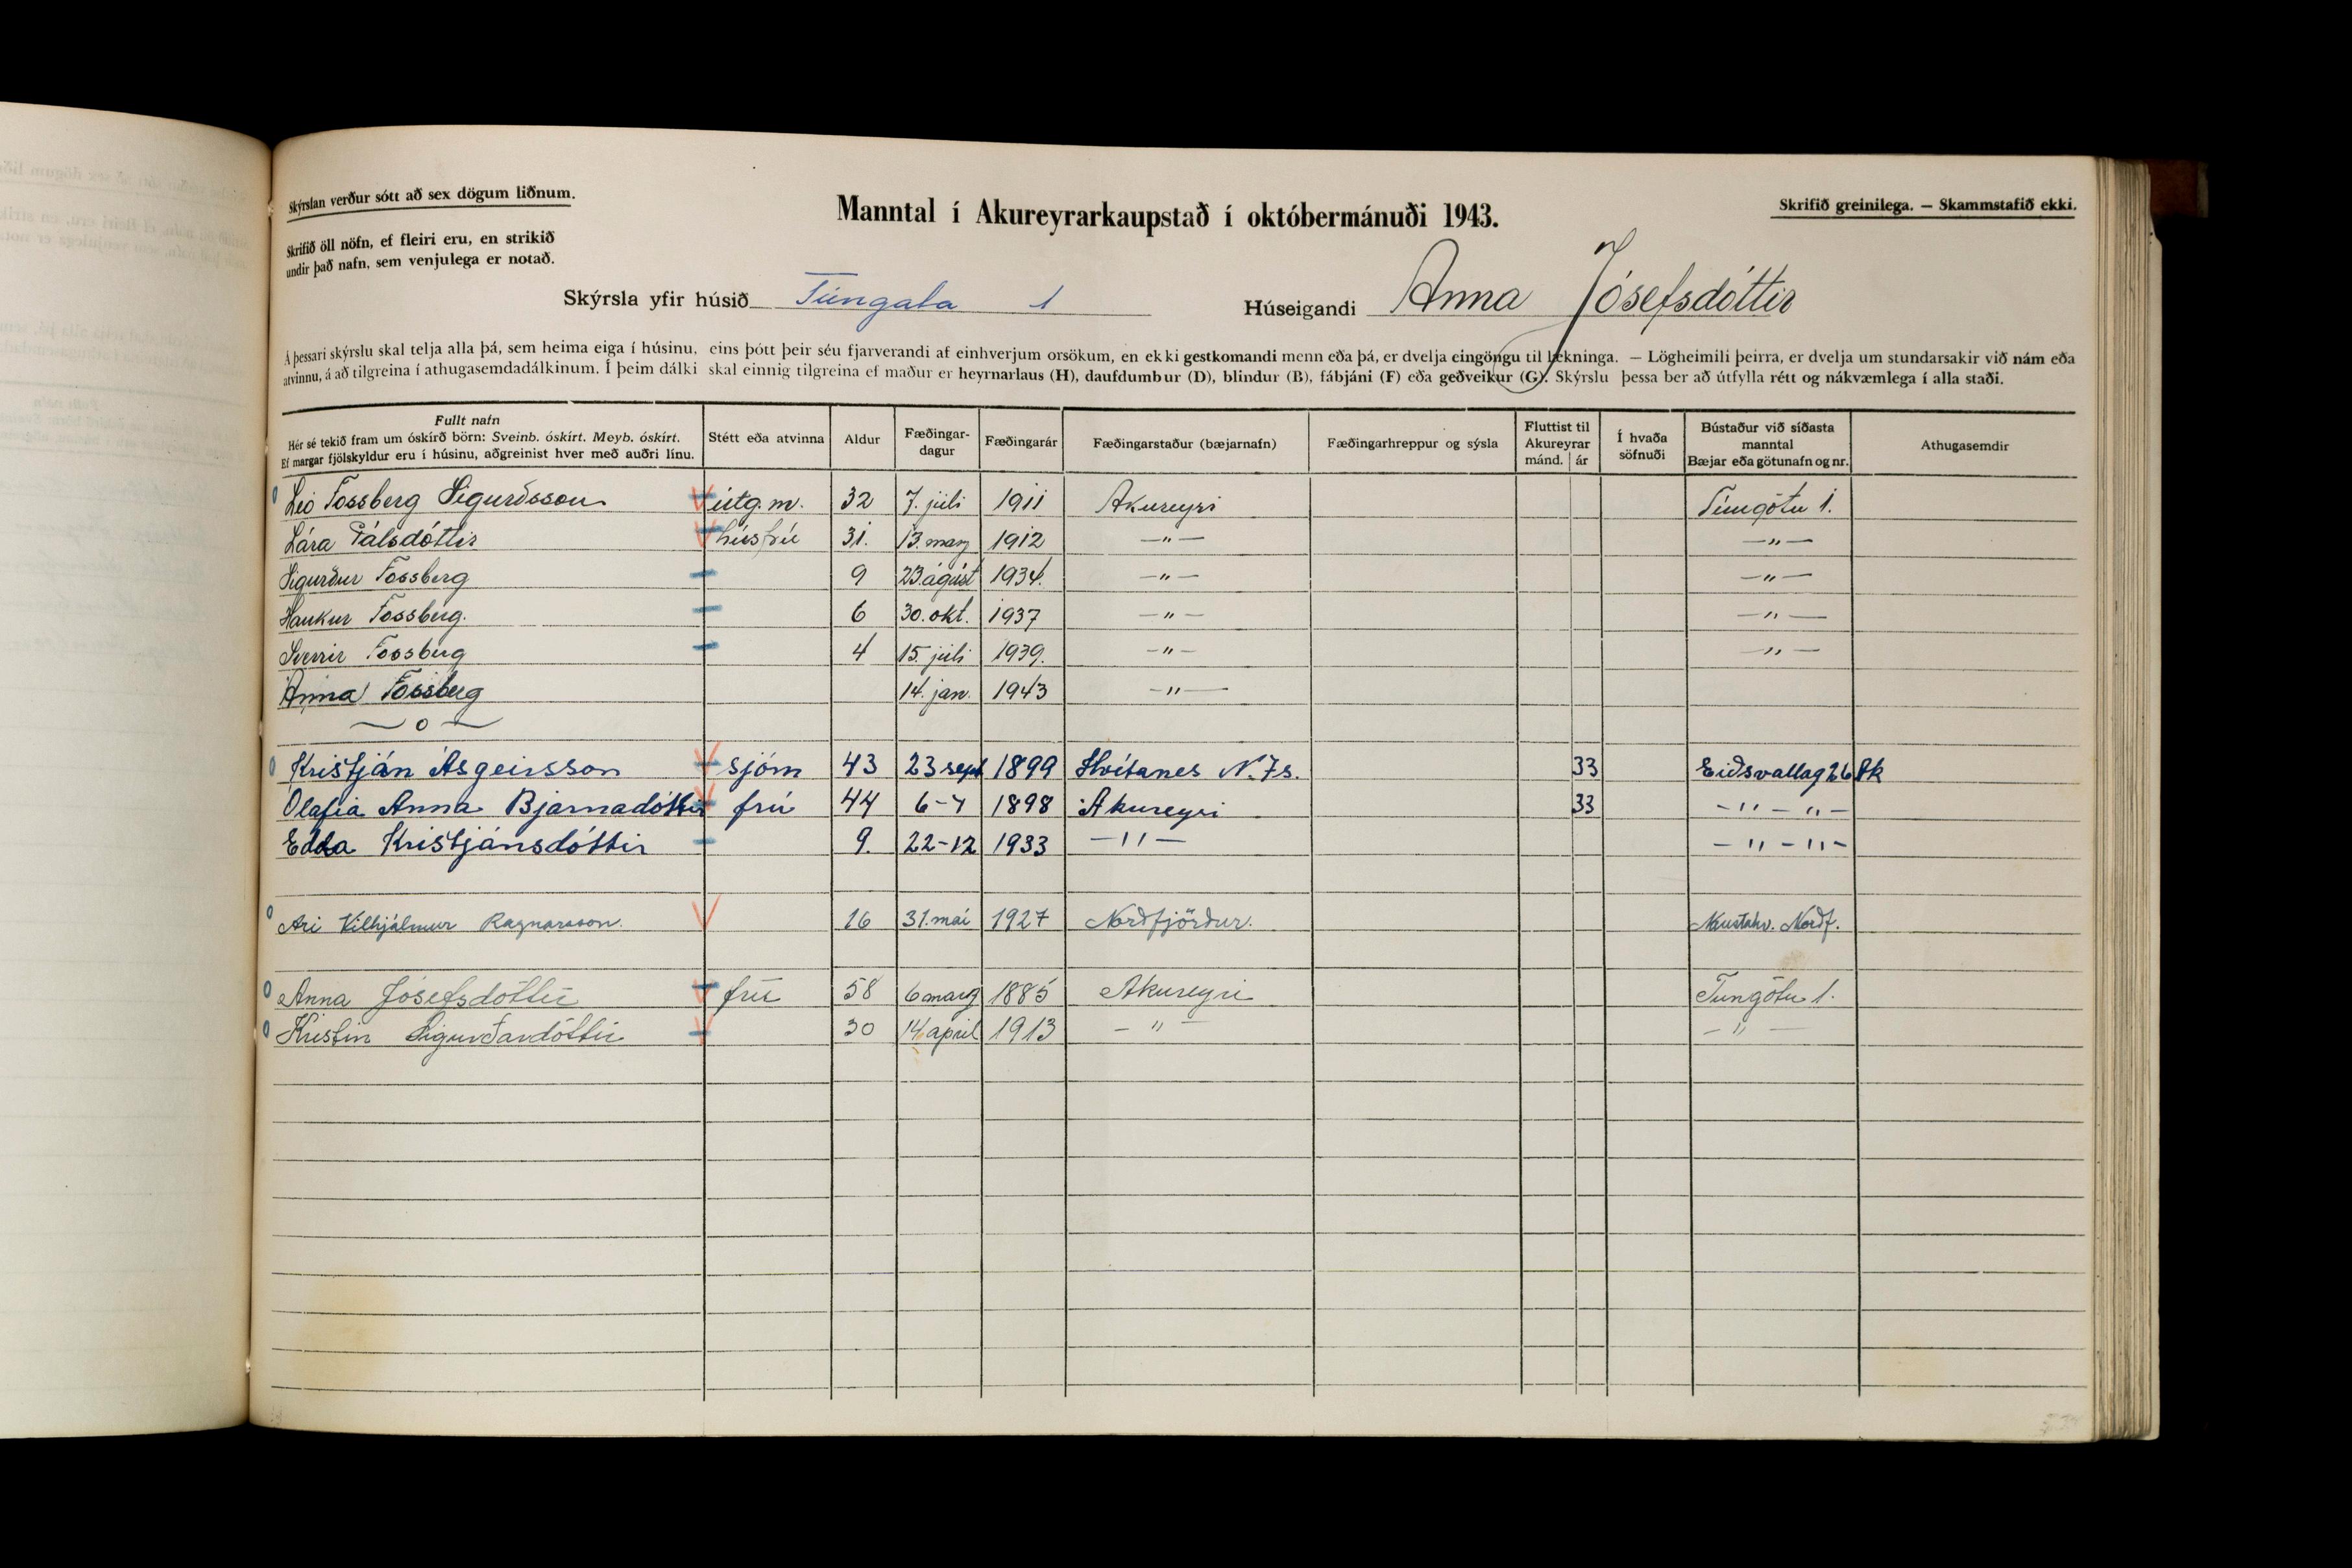 Skýrslan verður sótt að sex dögum liðnum.
Manntal í Akureyrarkaupstað í októbermánuði 1943.
Skrifið greinilega. — Skammstafið ekki.
Skrifið öll nöfn, ef fleiri eru, en strikið
undir það nafn, sem venjulega er notað.
Skýrsla yfir húsið Túngata 1 Húseigandi Anna Jósefsdóttir
Á þessari skýrslu skal telja alla þá, sem heima eiga í húsinu, eins þótt þeir séu fjarverandi af einhverjum orsökum, en ekki gestkomandi menn eða þá, er dvelja eingöngu til lækninga. — Lögheimili þeirra, er dvelja um stundarsakir við nám eða
atvinnu, á að tilgreina í athugasemdadálkinum. Í þeim dálki skal einnig tilgreina ef maður er heyrnarlaus (H), daufdumbur (D), blindur (B), fábjáni (F) eða geðveikur (G). Skýrslu þessa ber að útfylla rétt og nákvæmlega í alla staði.
Fullt nafn
Hér sé tekið fram um óskírð börn: Sveinb. óskírt. Meyb. óskírt.
Ef margar fjölskyldur eru í húsinu, aðgreinist hver með auðri línu.
Stétt eða atvinna
Aldur
Fæðingar-
dagur
Fæðingarár
Fæðingarstaður (bæjarnafn)
Fæðingarhreppur og sýsla
Fluttist til
Akureyrar
mánd. ár
Í hvaða
söfnuði
Bústaður við síðasta
manntal
Bæjar eða götunafn og nr.
Athugasemdir
Leó Fossberg Sigurðsson útg.m. 32 7. júlí 1911 Akureyri Túngötu 1.
Lára Pálsdóttir húsfrú 31. 13. marz 1912 —"— —"—
Sigurður Fossberg 9 23. ágúst 1934. —"— —"—
Haukur Fossberg. 6 30. okt. 1937 —"— —"—
Sverrir Fossberg 4 15. júlí 1939. —"— —"—
Anna Fossberg 14. jan. 1943 —"—
~ o ~
Kristján Ásgeirsson sjóm 43 23 sept 1899 Hvítanes N.Ís. 33 Eiðsvallag 26 Ak
Olafia Anna Bjarnadóttir frú 44 6-7 1898 Akureyri 33 -"- "-
Edda Kristjánsdóttir 9. 22-12 1933 —"— -"-"-
Ari Vilhjálmur Ragnarsson. 16 31. maí 1927 Norðfjörður. Norðf.
Anna Jósefsdóttir frú 58 6 marz 1885 Akureyri Tungötu 1.
Kristin Sigurðardóttir 30 14 april 1913 —"— —"—